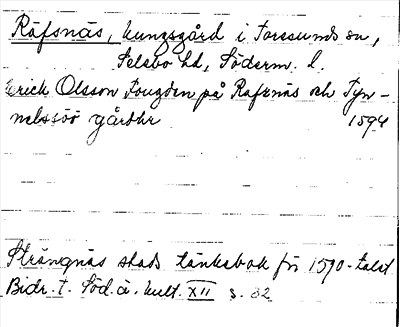 Räfsnäs, kungsgård i Toresunds sn,
Selebo hd, Söderm. l.
Erick Olsson Fougden på Rafznäs och Tyn-
nelssöö gårdhr 1594
Strängnäs stads tänkebok för 1590-talet
Bidr. t. Söd. ä. kult. XII s. 82